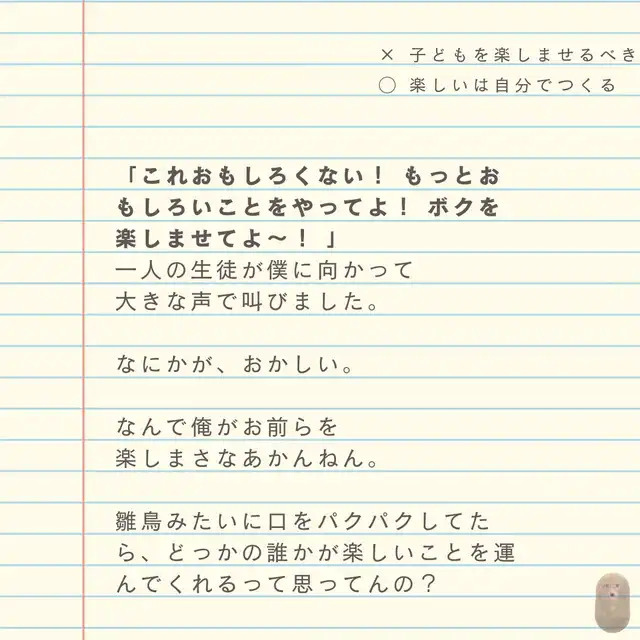 × 子どもを楽しませるべき
○ 楽しいは自分でつくる
「これおもしろくない! もっとお
もしろいことをやってよ! ボクを
楽しませてよ〜! 」
一人の生徒が僕に向かって
大きな声で叫びました。
なにかが、おかしい。
なんで俺がお前らを
楽しまさなあかんねん。
雛鳥みたいに口をパクパクしてた
ら、どっかの誰かが楽しいことを運
んでくれるって思ってんの?